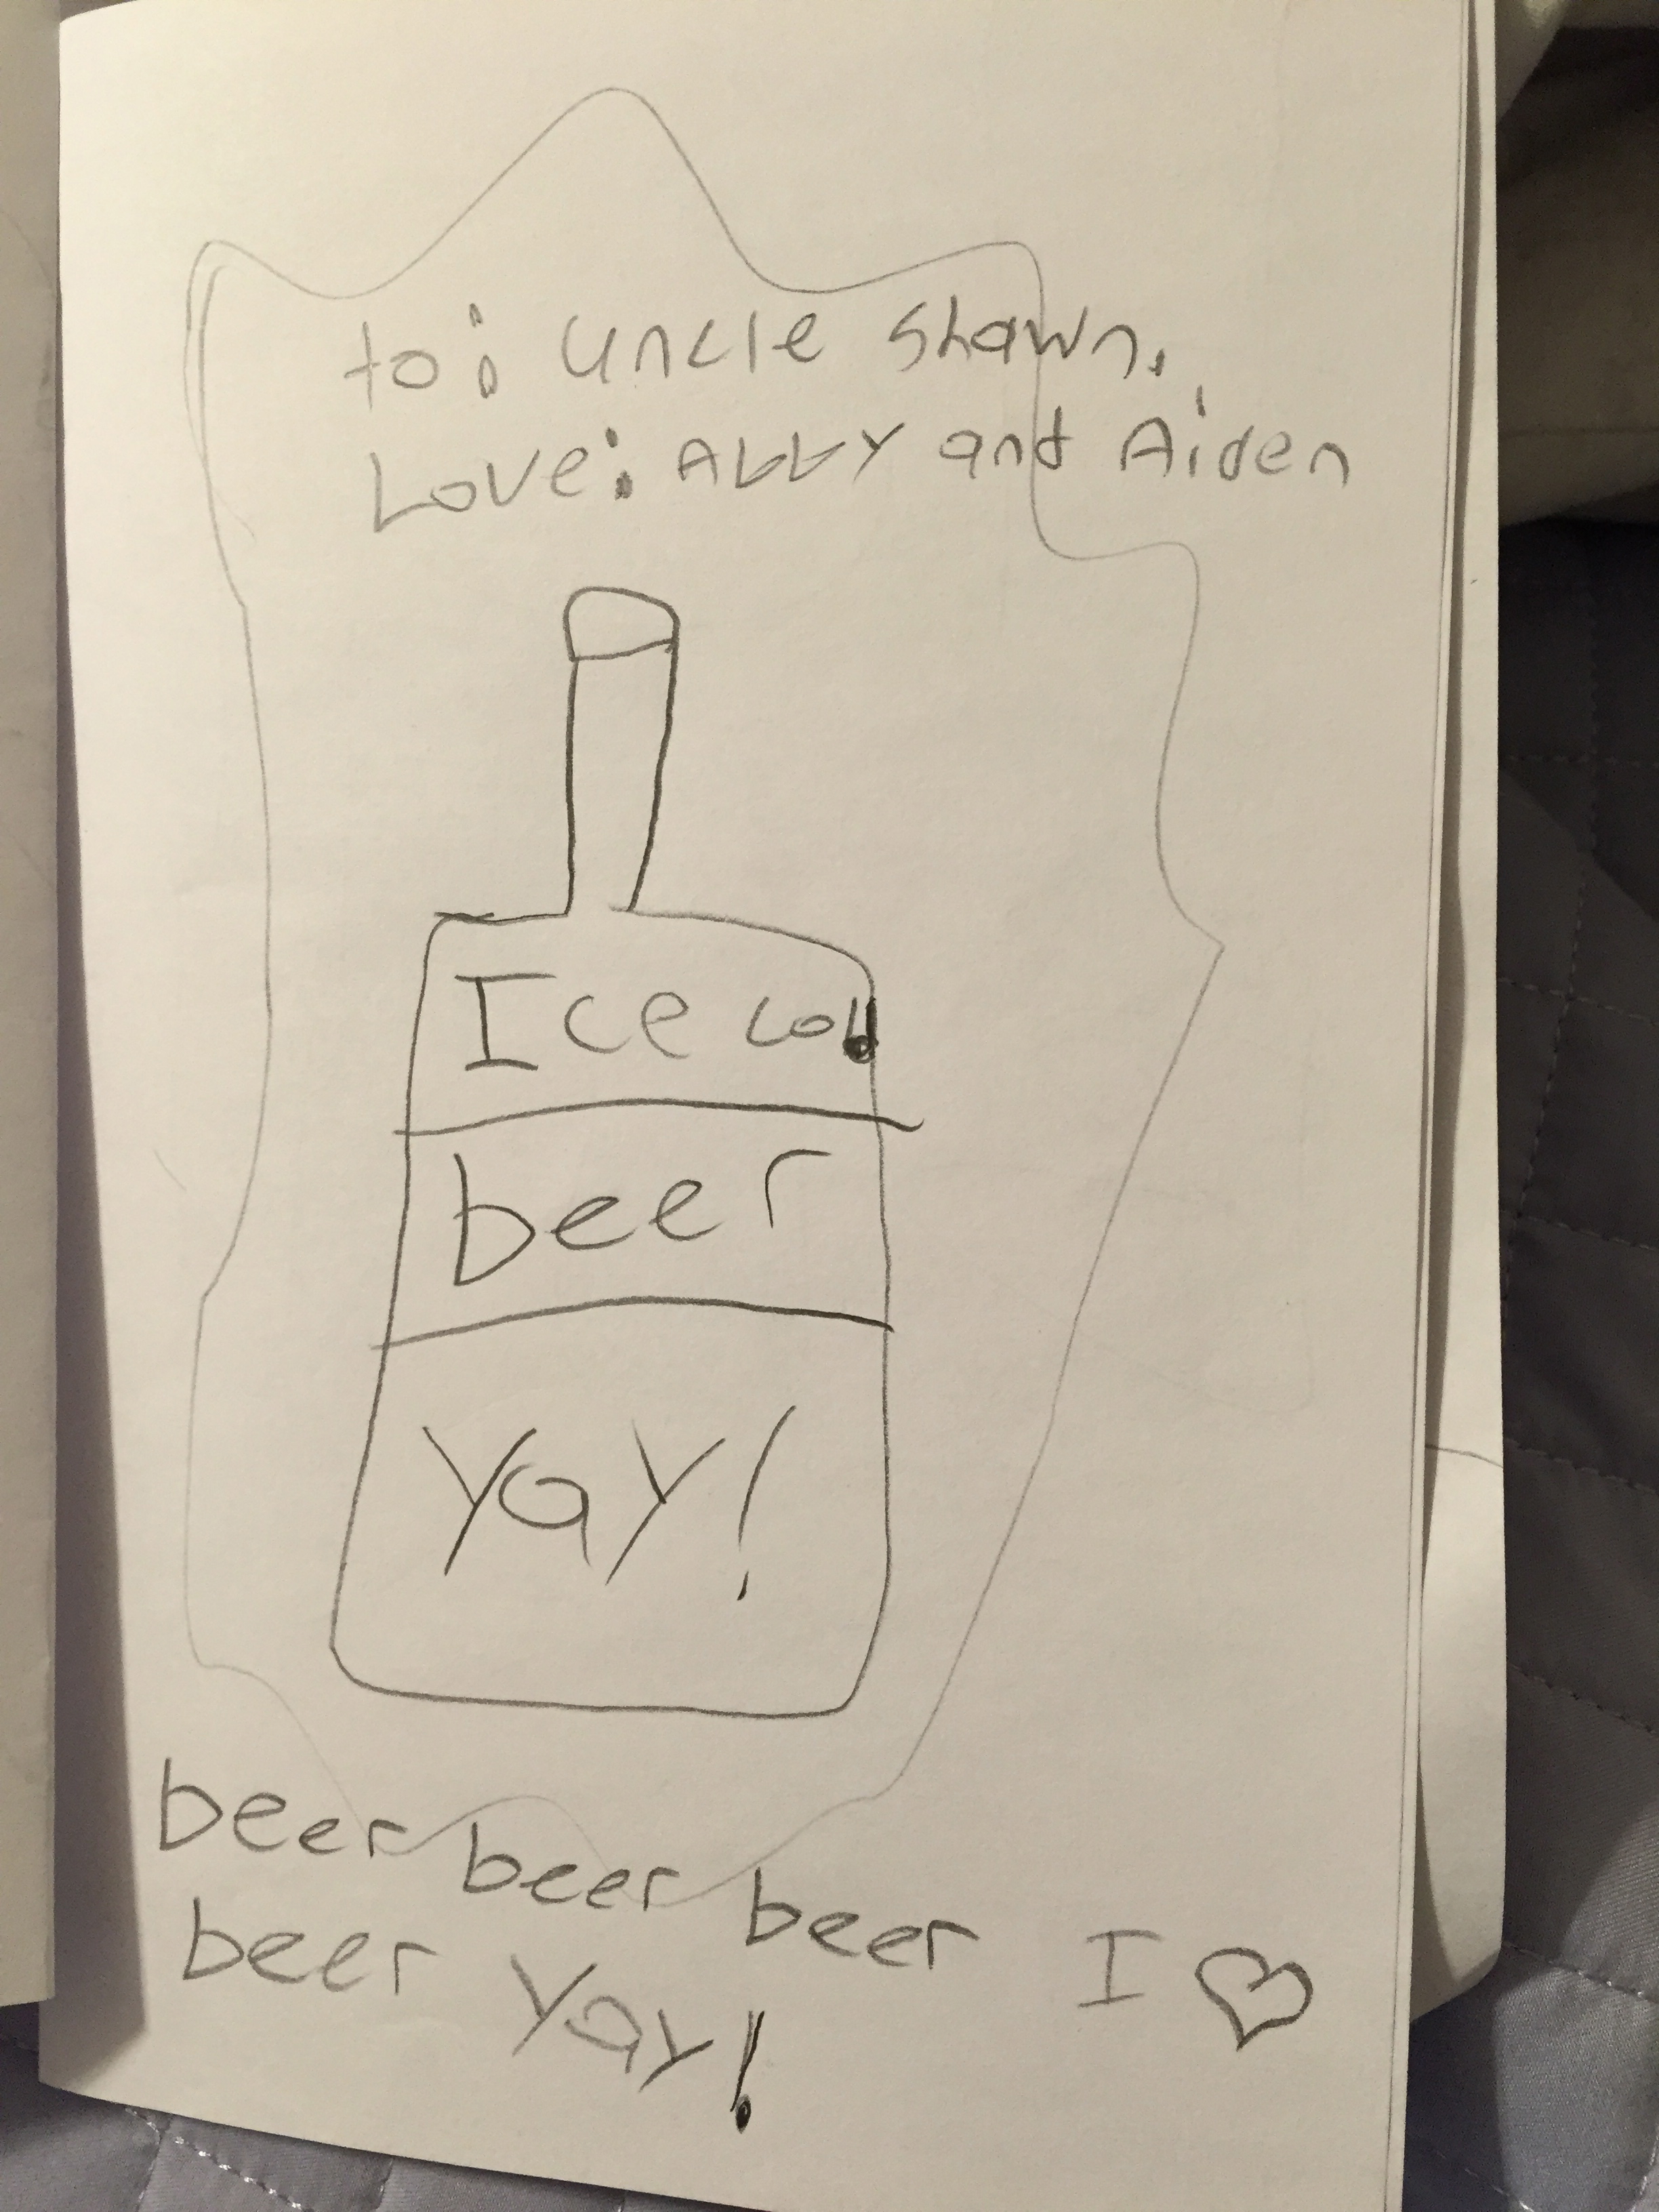 to: uncle Shawn.
Love: Abby and Aiden
Ice cold
beer
yay!
beer beer beer I ♡
beer yay!